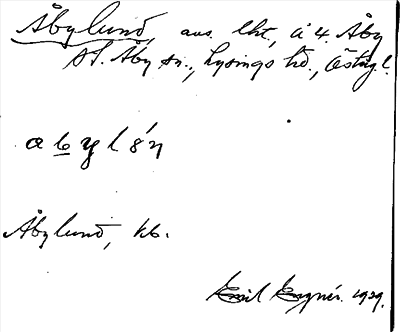 Åbylund, avs. lht, å 4. Åby
St. Åby sn., Lysings hd., Östg.l.
a b y l 8´ŋ
Åbylund, kb.
Emil Eugnér. 1929.